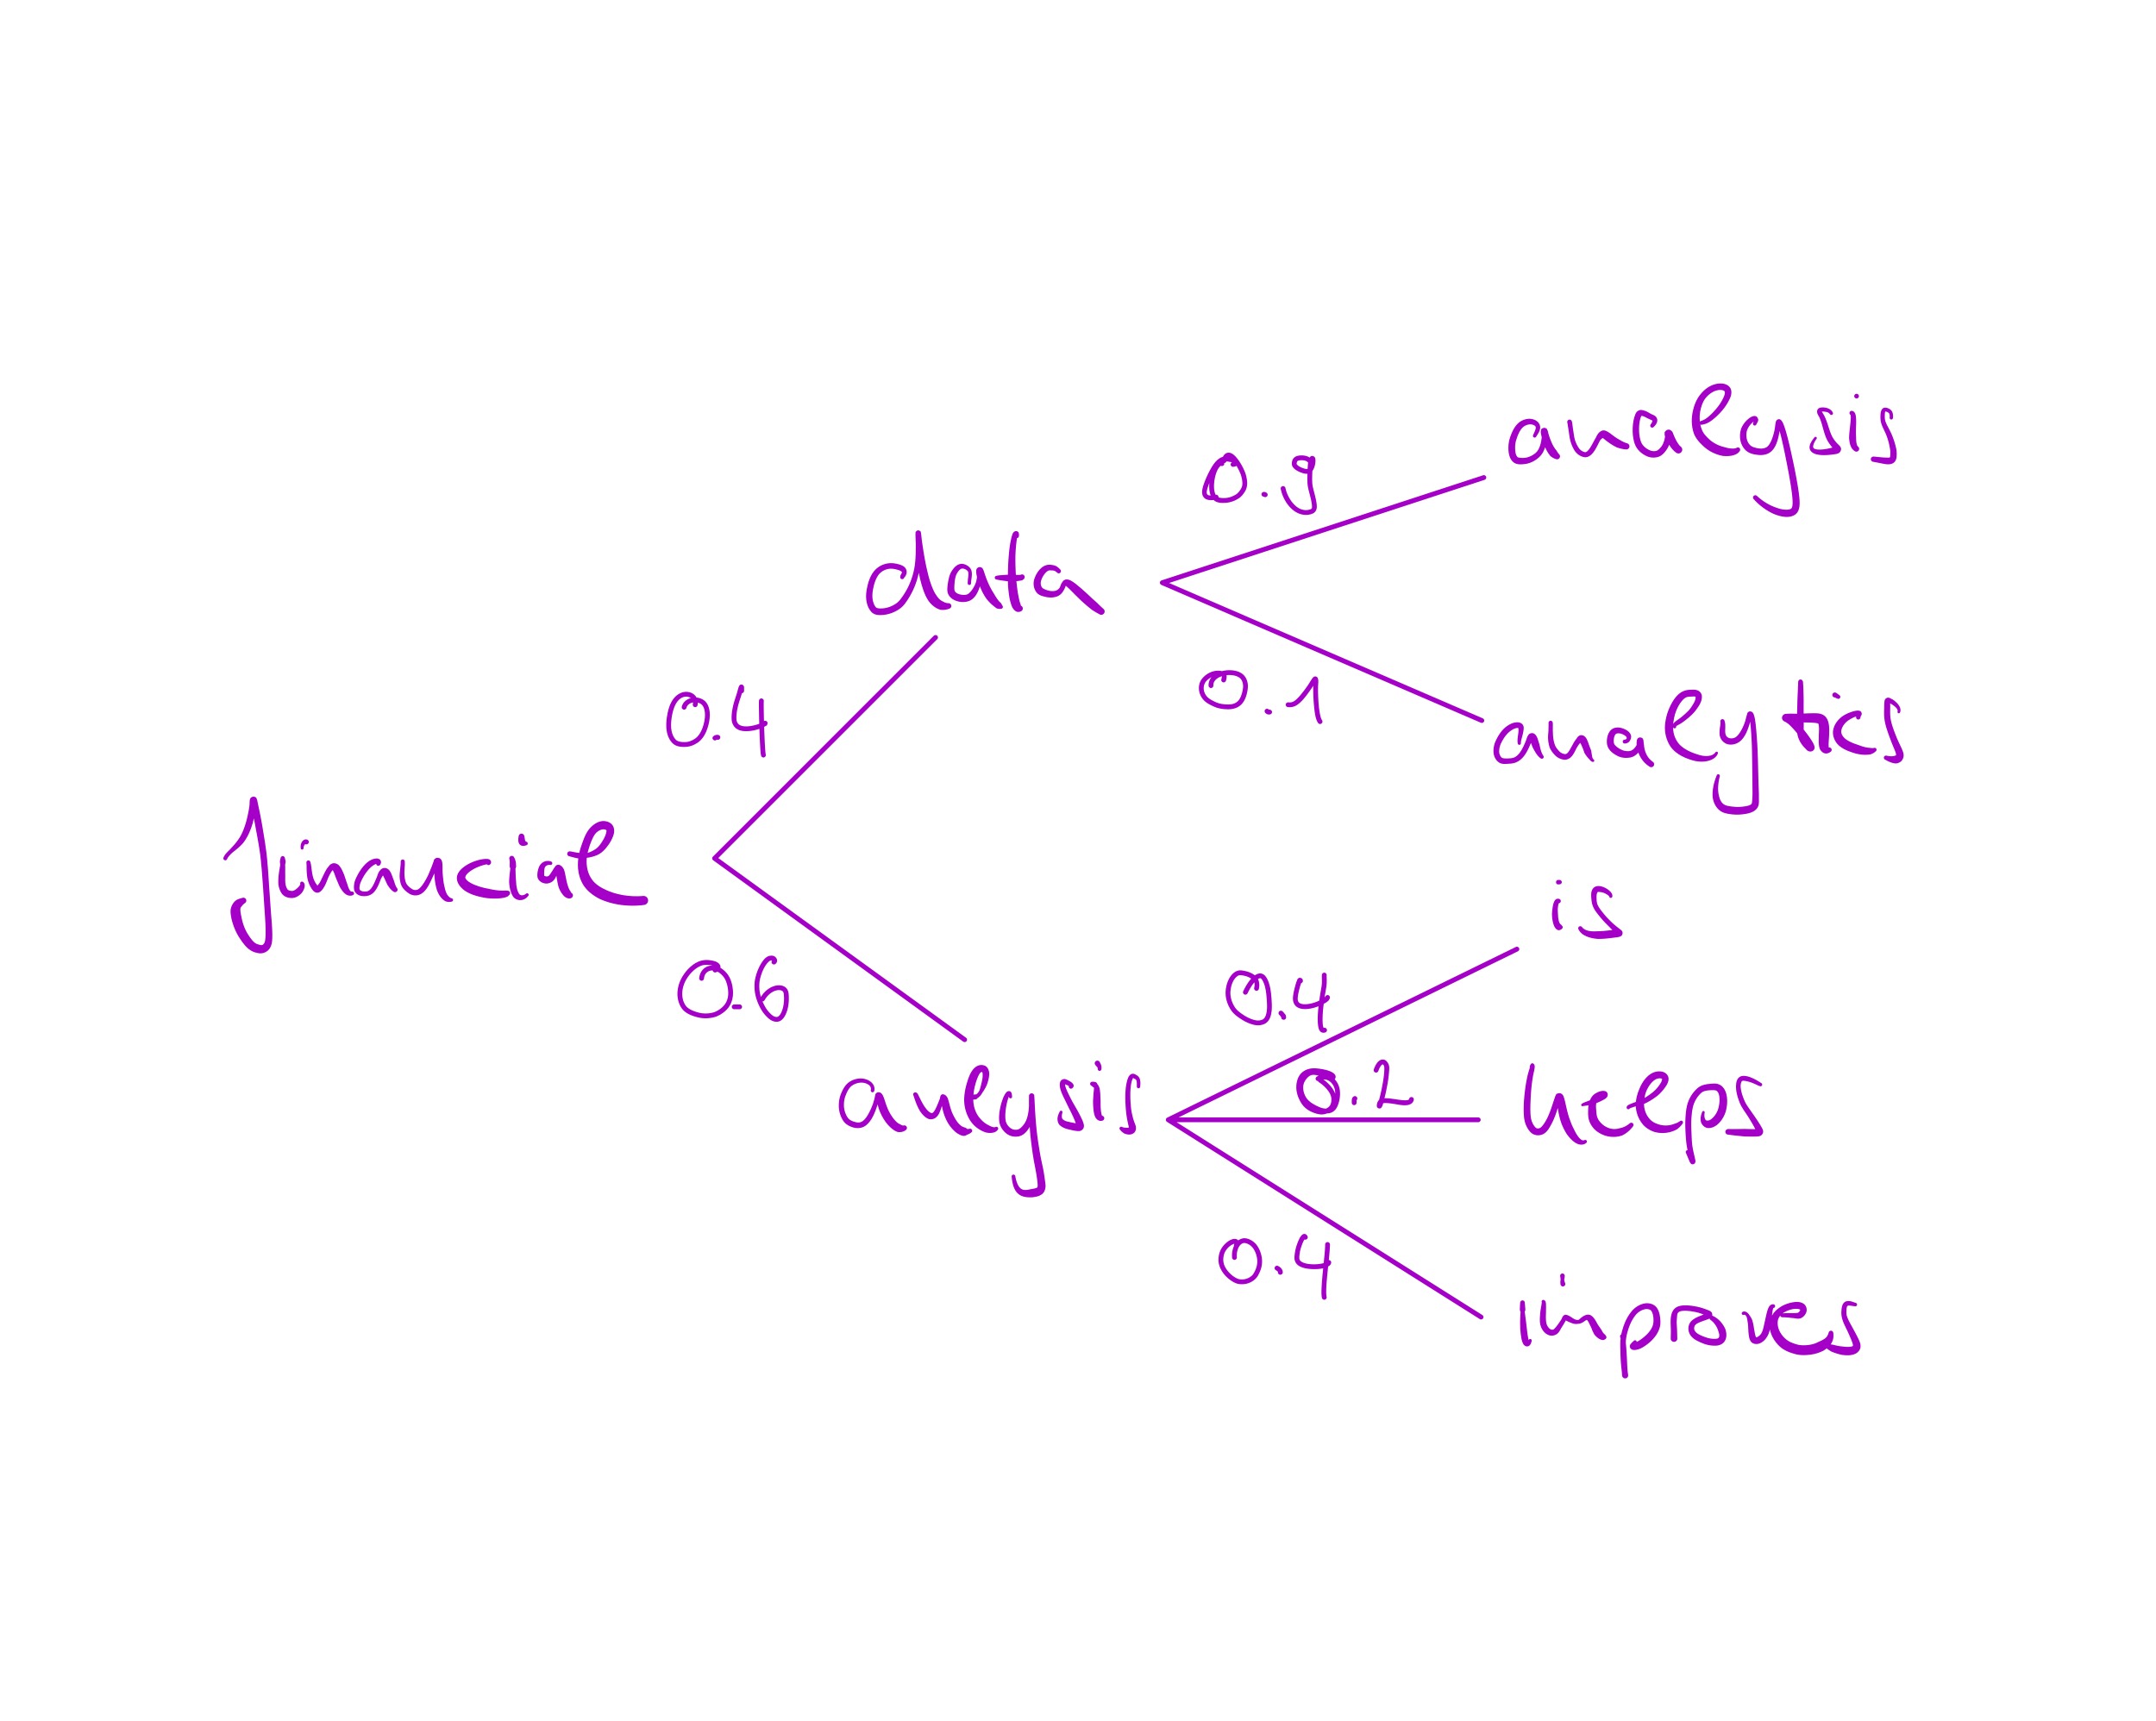 financial
0.4
data
0.9
analysis
0.1
analytics
0.6
analysis
0.4
is
0.2
keeps
0.4
improves